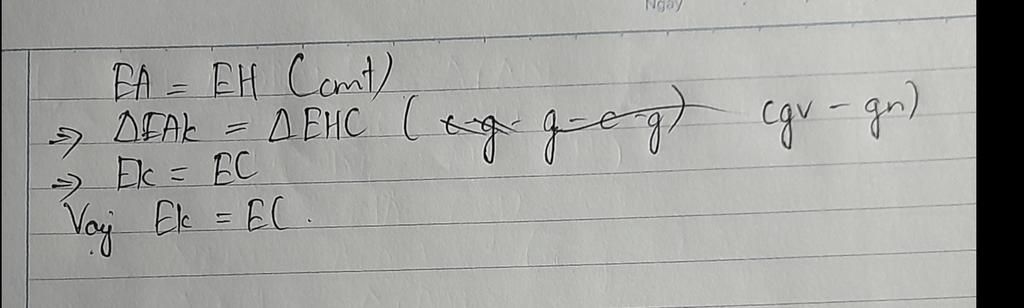 Ngày
EA = EH (cmt)
=> ΔEAK = ΔEHC ( (cgv - gn)
=> EK = EC
Vậy EK = EC.